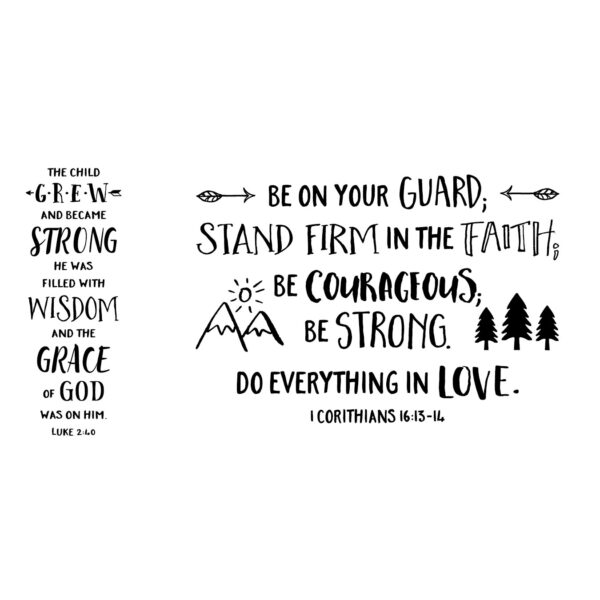 THE CHILD
G·R·E·W
AND BECAME
STRONG
HE WAS
FILLED WITH
WISDOM
AND THE
GRACE
OF GOD
WAS ON HIM.
LUKE 2:40
BE ON YOUR GUARD;
STAND FIRM IN THE FAITH;
BE COURAGEOUS;
BE STRONG.
DO EVERYTHING IN LOVE.
1 CORITHIANS 16:13-14